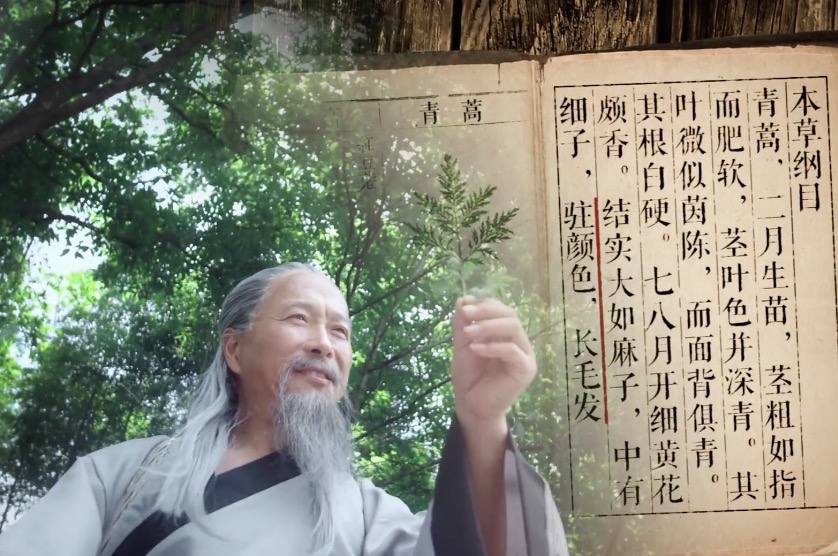 本草纲目
青蒿，二月生苗，茎粗如指
而肥软，茎叶色并深青。其
叶微似茵陈，而面背俱青。
其根白硬。七八月开细黄花
颇香。结实大如麻子，中有
细子，驻颜色，长毛发
青蒿